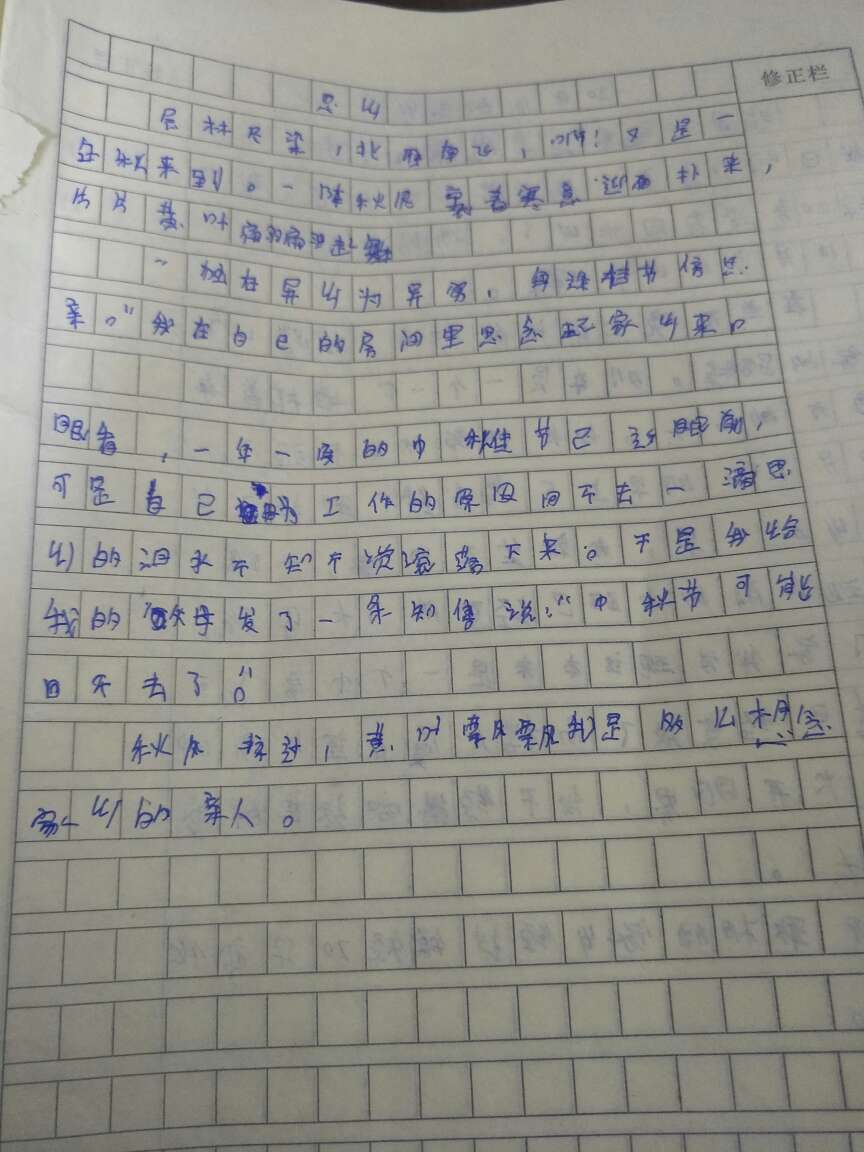 修正栏
思乡
层林尽染，北雁南飞，啊！又是一
年秋来到。一阵秋风裹着寒意迎面扑来，
片片黄叶
"独在异乡为异客，每逢佳节倍思
亲。"我在自己的房间里思念起家乡来。
眼看，一年一度的中秋佳节已到眼前，
可是自己因为工作的原因回不去一滴思
乡的泪水不知不觉流落下来。于是我给
我的父母发了一条短信说："中秋节可能
回不去了。"
秋风掠过，黄叶飘飘我是多么想念
家乡的亲人。